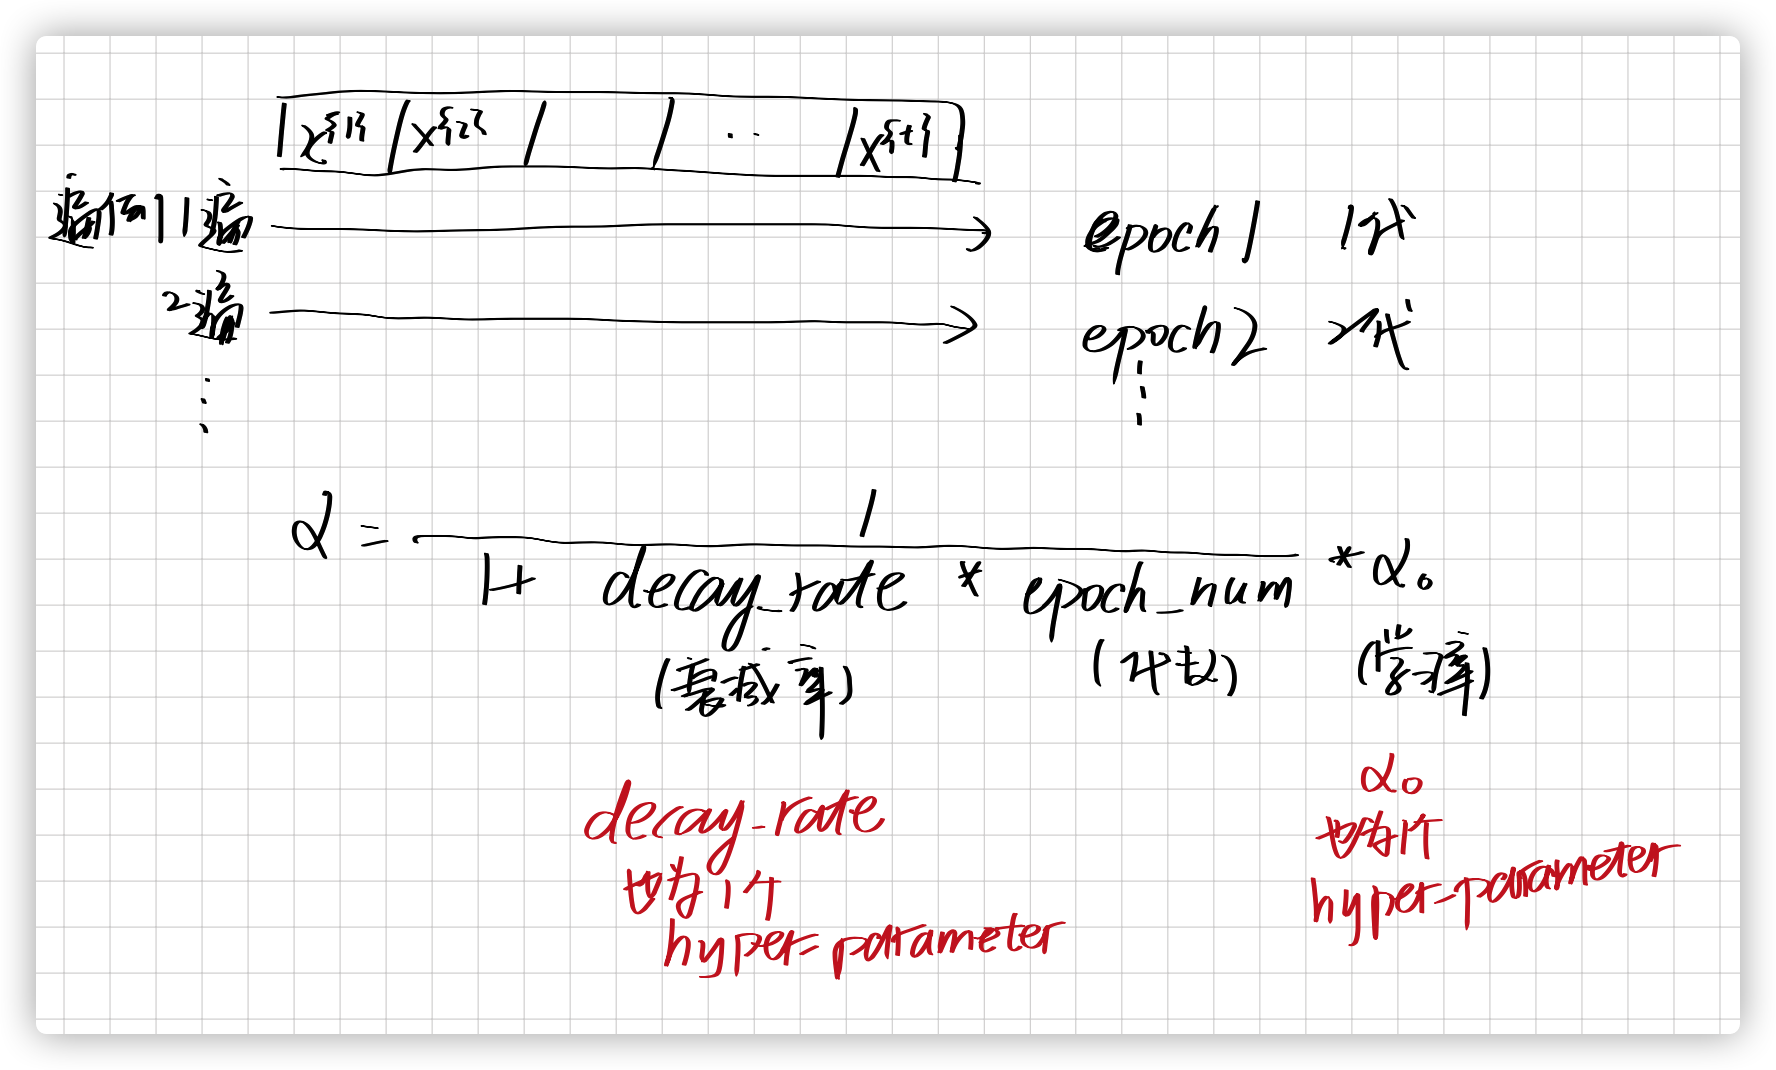 x^{1} x^{2} ‥ x^{t}
遍历1遍 epoch 1 1代
2遍 epoch 2 2代
⋮ ⋮
α = 1 / (1 + decay_rate * epoch_num) * α₀
(衰减率) (代数) (学习率)
decay_rate α₀
也为1个 也为1个
hyper-parameter hyper-parameter